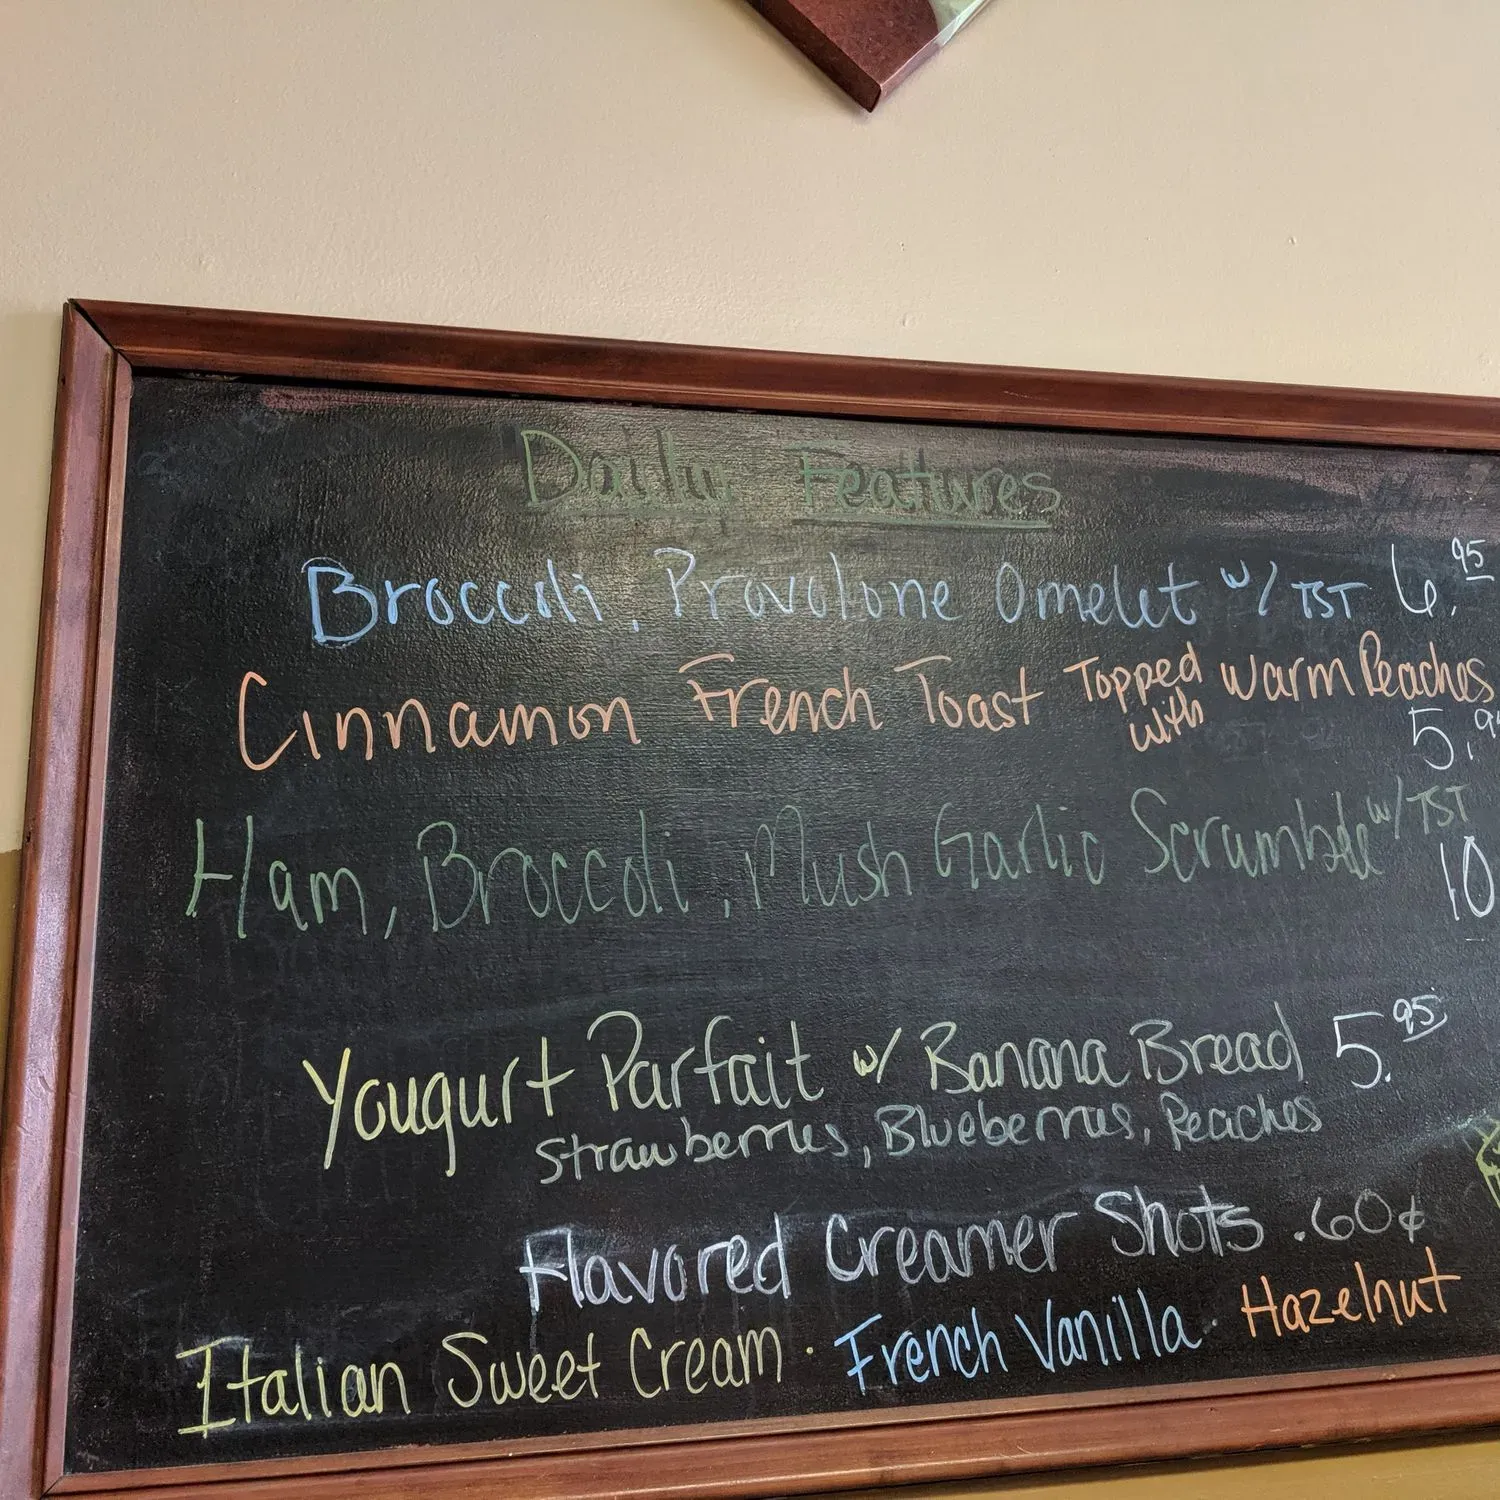 Daily Features
Broccoli, Provolone Omelet w/ TST 6.95
Cinnamon French Toast Topped with Warm Peaches
5.9
Ham, Broccoli, Mush Garlic Scramble w/ TST
10
Yougurt Parfait w/ Banana Bread 5.95
Strawberries, Blueberries, Peaches
Flavored Creamer Shots .60¢
Italian Sweet Cream · French Vanilla · Hazelnut